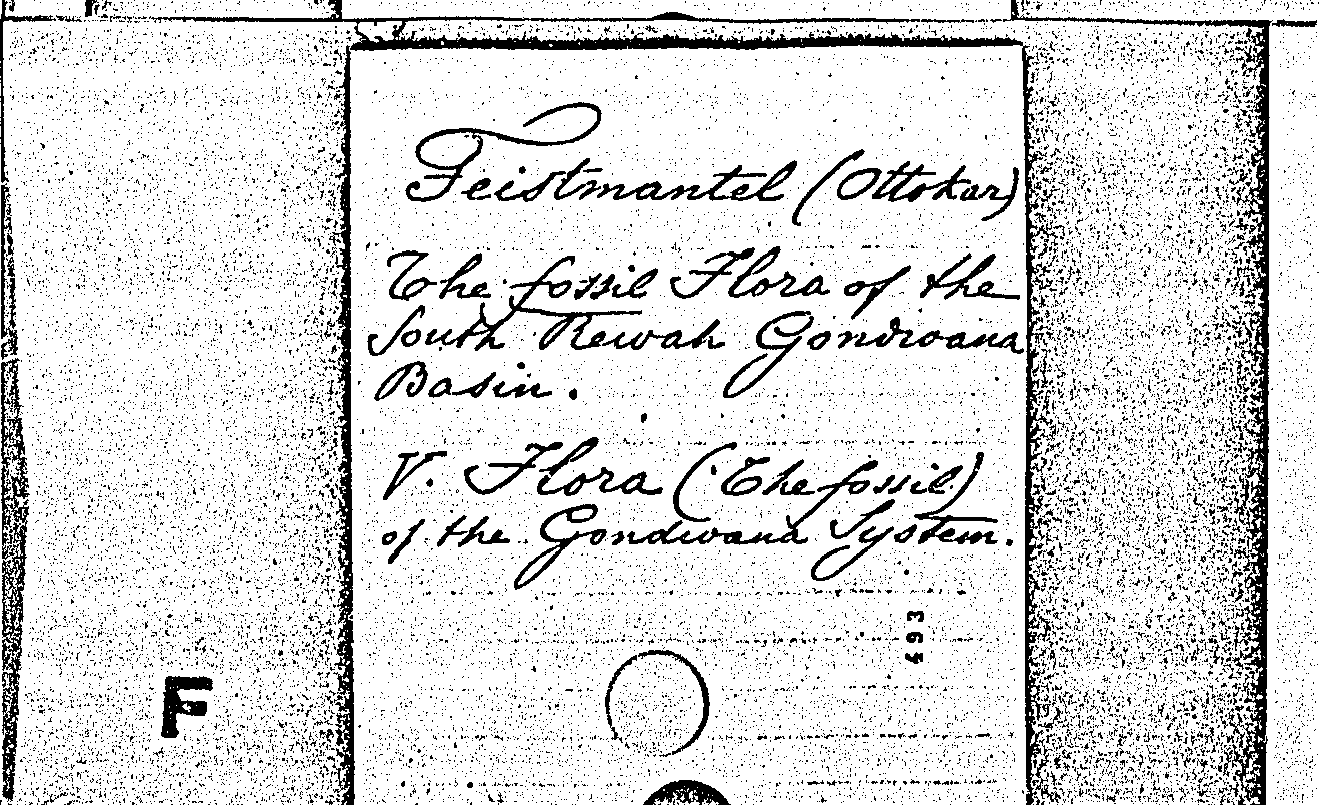 Feistmantel (Ottokar)
The fossil Flora of the
South Rewah Gondwana
Basin.
V. Flora (The fossil)
of the Gondwana System.
493
F